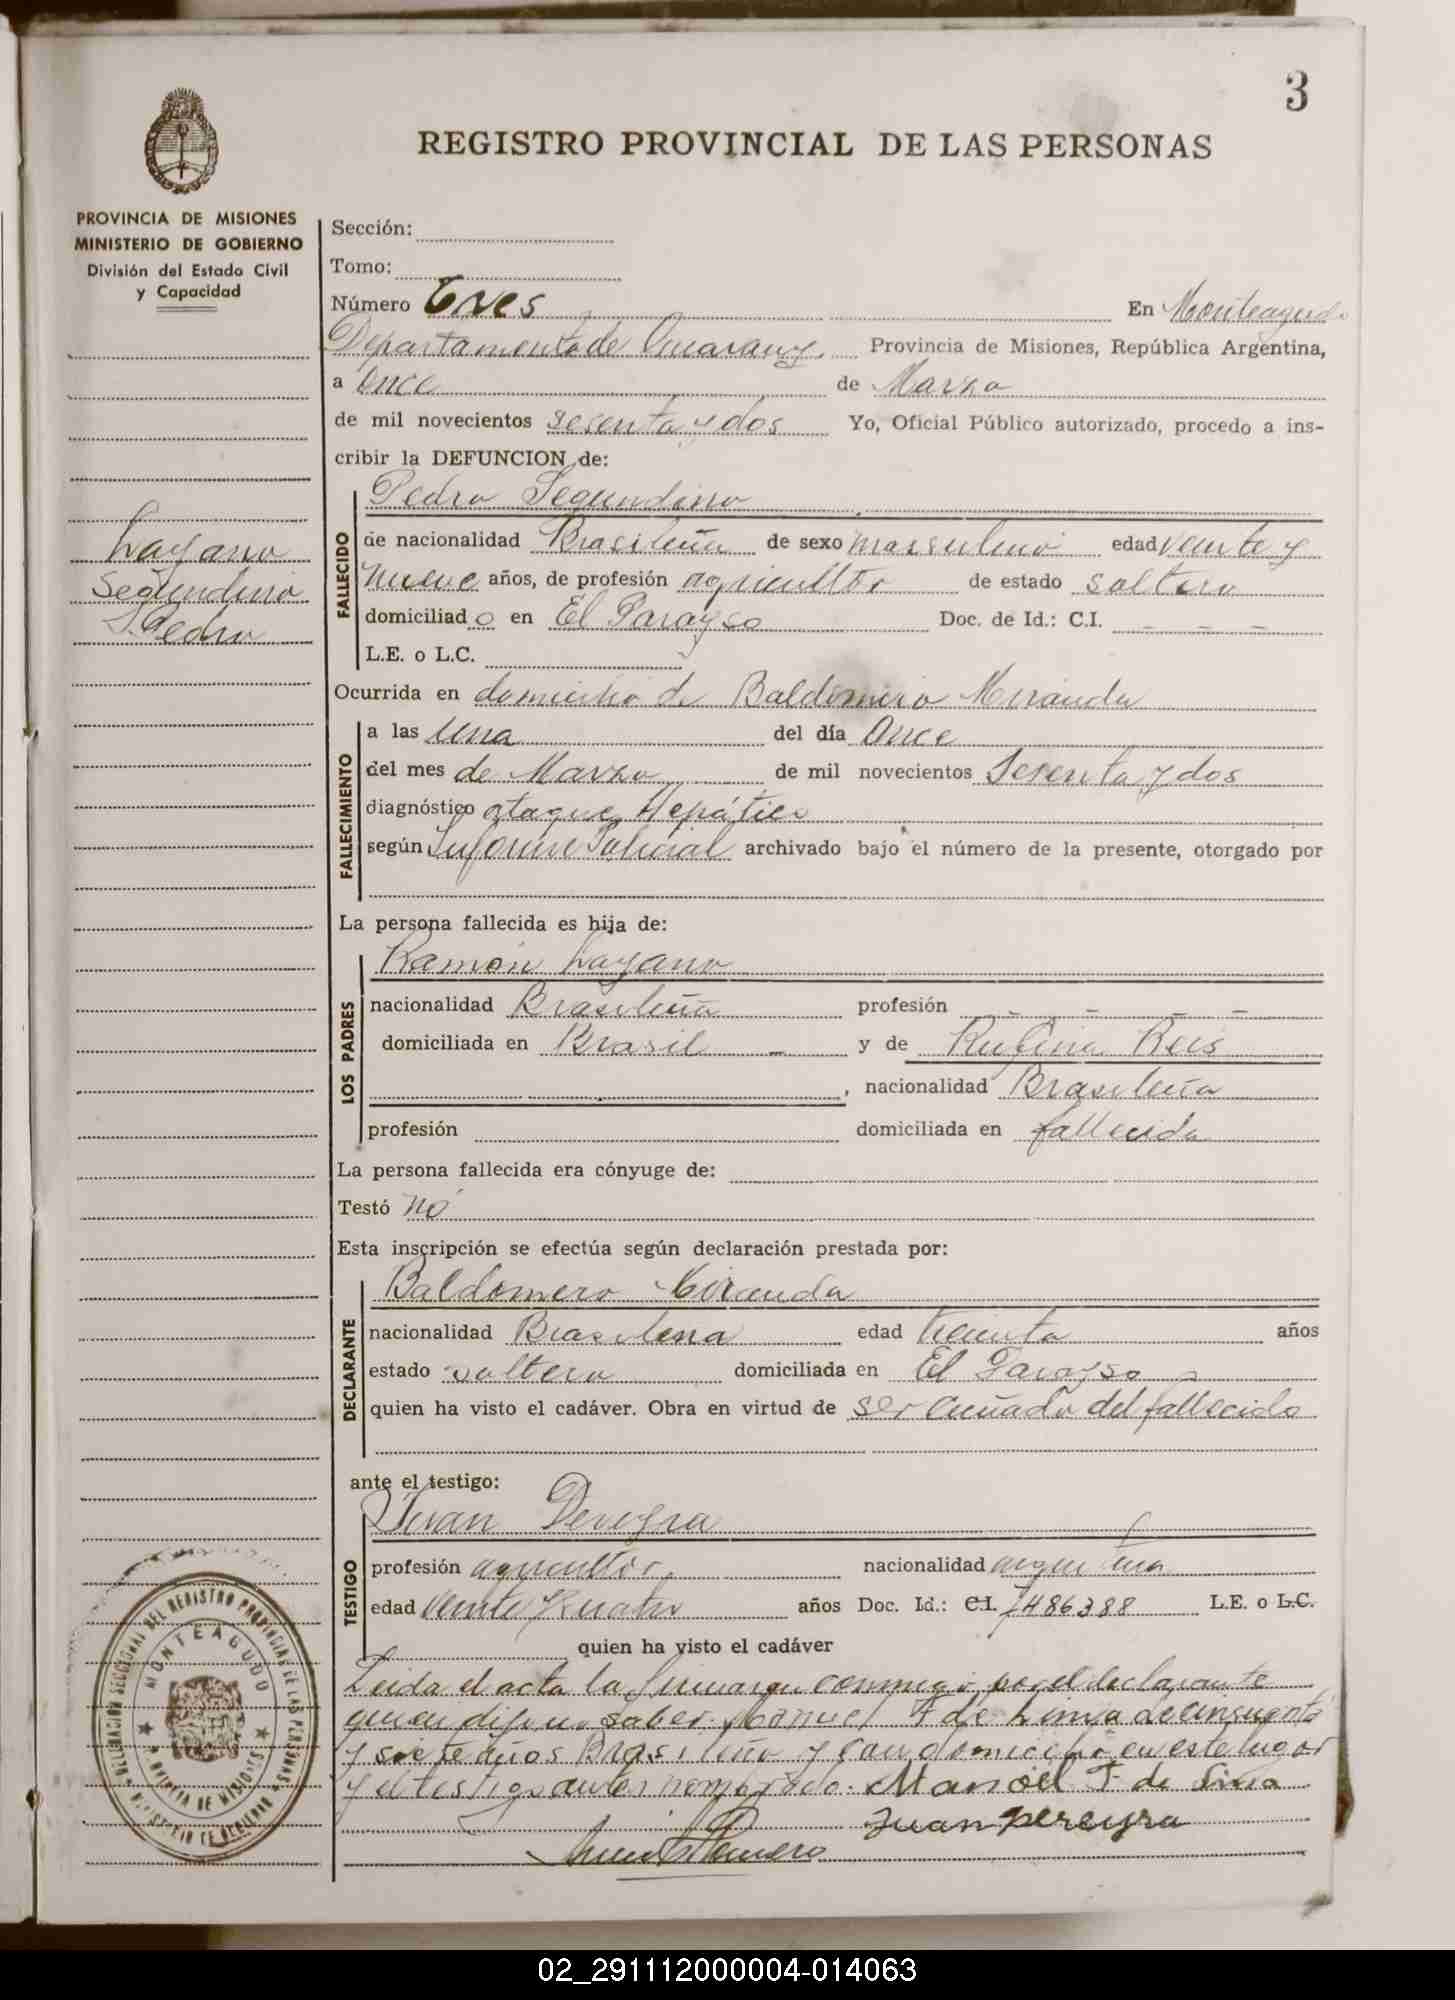 3
REGISTRO PROVINCIAL DE LAS PERSONAS
PROVINCIA DE MISIONES
MINISTERIO DE GOBIERNO
División del Estado Civil
y Capacidad
Layano
Segundino
Pedro
Sección:
Tomo:
Número Tres En Monteagudo
Departamento de Guarany. Provincia de Misiones, República Argentina,
a Once de Marzo
de mil novecientos sesenta y dos Yo, Oficial Público autorizado, procedo a ins-
cribir la DEFUNCION de:
FALLECIDO
Pedro Segundino
de nacionalidad Brasileña de sexo masculino edad veinte y
nueve años, de profesión agricultor de estado soltero
domiciliado en El Parayso Doc. de Id.: C.I. - - -
L.E. o L.C.
Ocurrida en domicilio de Baldomero Miranda
FALLECIMIENTO
a las una del día Once
del mes de Marzo de mil novecientos Sesenta y dos
diagnóstico ataque Hepático
según Informe Policial archivado bajo el número de la presente, otorgado por
La persona fallecida es hija de:
LOS PADRES
Ramón Layano
nacionalidad Brasileña profesión - - - -
domiciliada en Brasil - y de Rufina Reis
, nacionalidad Brasileña
profesión domiciliada en fallecida
La persona fallecida era cónyuge de:
Testó no
Esta inscripción se efectúa según declaración prestada por:
DECLARANTE
Baldomero Miranda
nacionalidad Brasilena edad treinta años
estado soltero domiciliada en El Parayso
quien ha visto el cadáver. Obra en virtud de ser cuñado del fallecido
ante el testigo:
TESTIGO
Juan Pereyra
profesión agricultor. nacionalidad argentina
edad veinte y cuatro años Doc. Id.: C.I. 7486388 L.E. o L.C.
quien ha visto el cadáver
Leida el acta la firman conmigo por el declarante
quien dijo no saber Manuel F de Lima de cincuenta
y siete años Brasileño y con domicilio en este lugar
y el testigo antes nombrado. Manoel F. de Lima
Juan pereyra
Romero
DELEGACION SECCIONAL DEL REGISTRO PROVINCIAL DE LAS PERSONAS
MONTEAGUDO
PROVINCIA DE MISIONES
MINISTERIO DE GOBIERNO
02_291112000004-014063